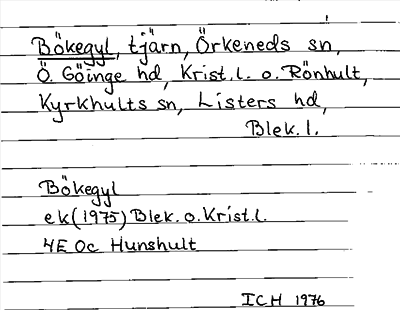 Bökegyl, tjärn, Örkeneds sn,
Ö. Göinge hd, Krist. l. o. Rönhult,
Kyrkhults sn, Listers hd,
Blek. l.
Bökegyl
ek (1975) Blek. o. Krist. l.
4E 0c Hunshult
ICH 1976